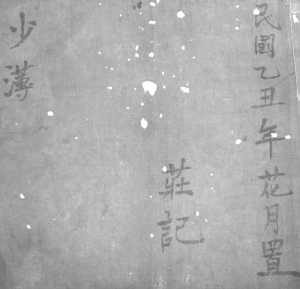 民國乙丑年花月置
莊記
少薄